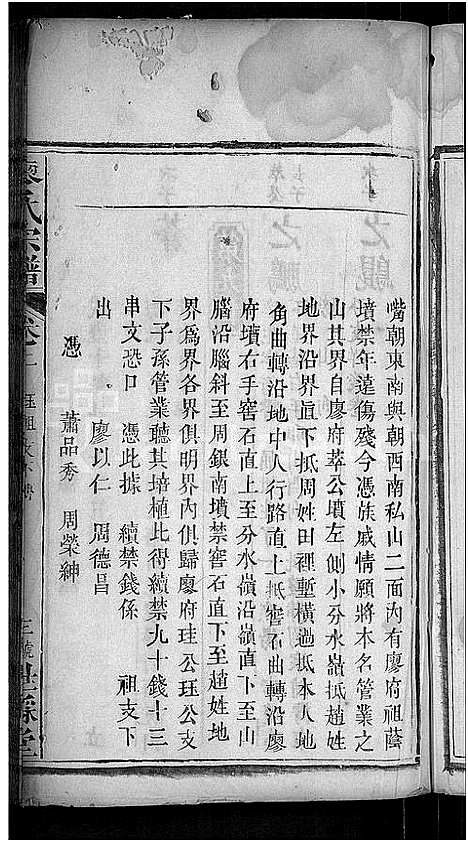 嘴朝東南與朝西南私山二面內有廖府祖蔭
墳禁年遠傷殘今憑族戚情願將本名管業之
山其界自廖府萃公墳左側小分水嶺抵趙姓
地界沿界直下抵周姓田裡塹橫過抵本人地
角曲轉沿地中人行路直上抵窖石曲轉沿廖
府墳右手窖石直上至分水嶺沿嶺直下至山
腦沿腦斜至周銀南墳禁窖石直下至趙姓地
界爲界各界俱明界內俱歸廖府珪公珏公支
下子孫管業聽其培植比得續禁九十錢十三
串文恐口　憑此據　續禁錢係　祖支下
出　廖以仁　周德昌
憑　蕭品秀　周榮紳
氏宗譜 卷 二